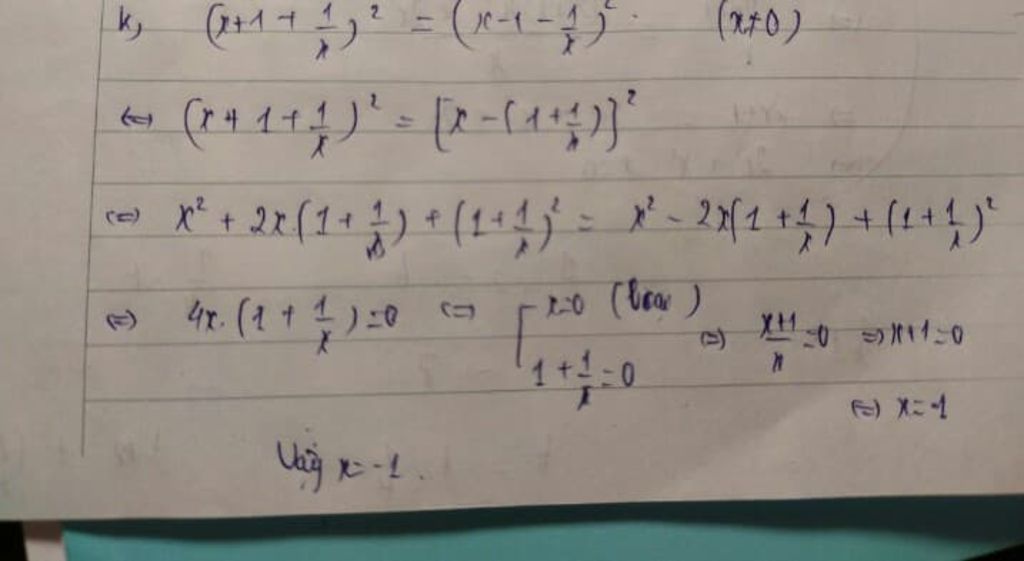 k, (x+1+1/x)² = (x-1-1/x)². (x≠0)
(=) (x+1+1/x)² = [x-(1+1/x)]²
(=) x² + 2x.(1+1/x) + (1+1/x)² = x² - 2x(1+1/x) + (1+1/x)²
(=) 4x.(1+1/x)=0 (=) [ x=0 (loại)
1+1/x=0 (=) x+1/x=0 =) x+1=0
(=) x=-1
Vậy x=-1.